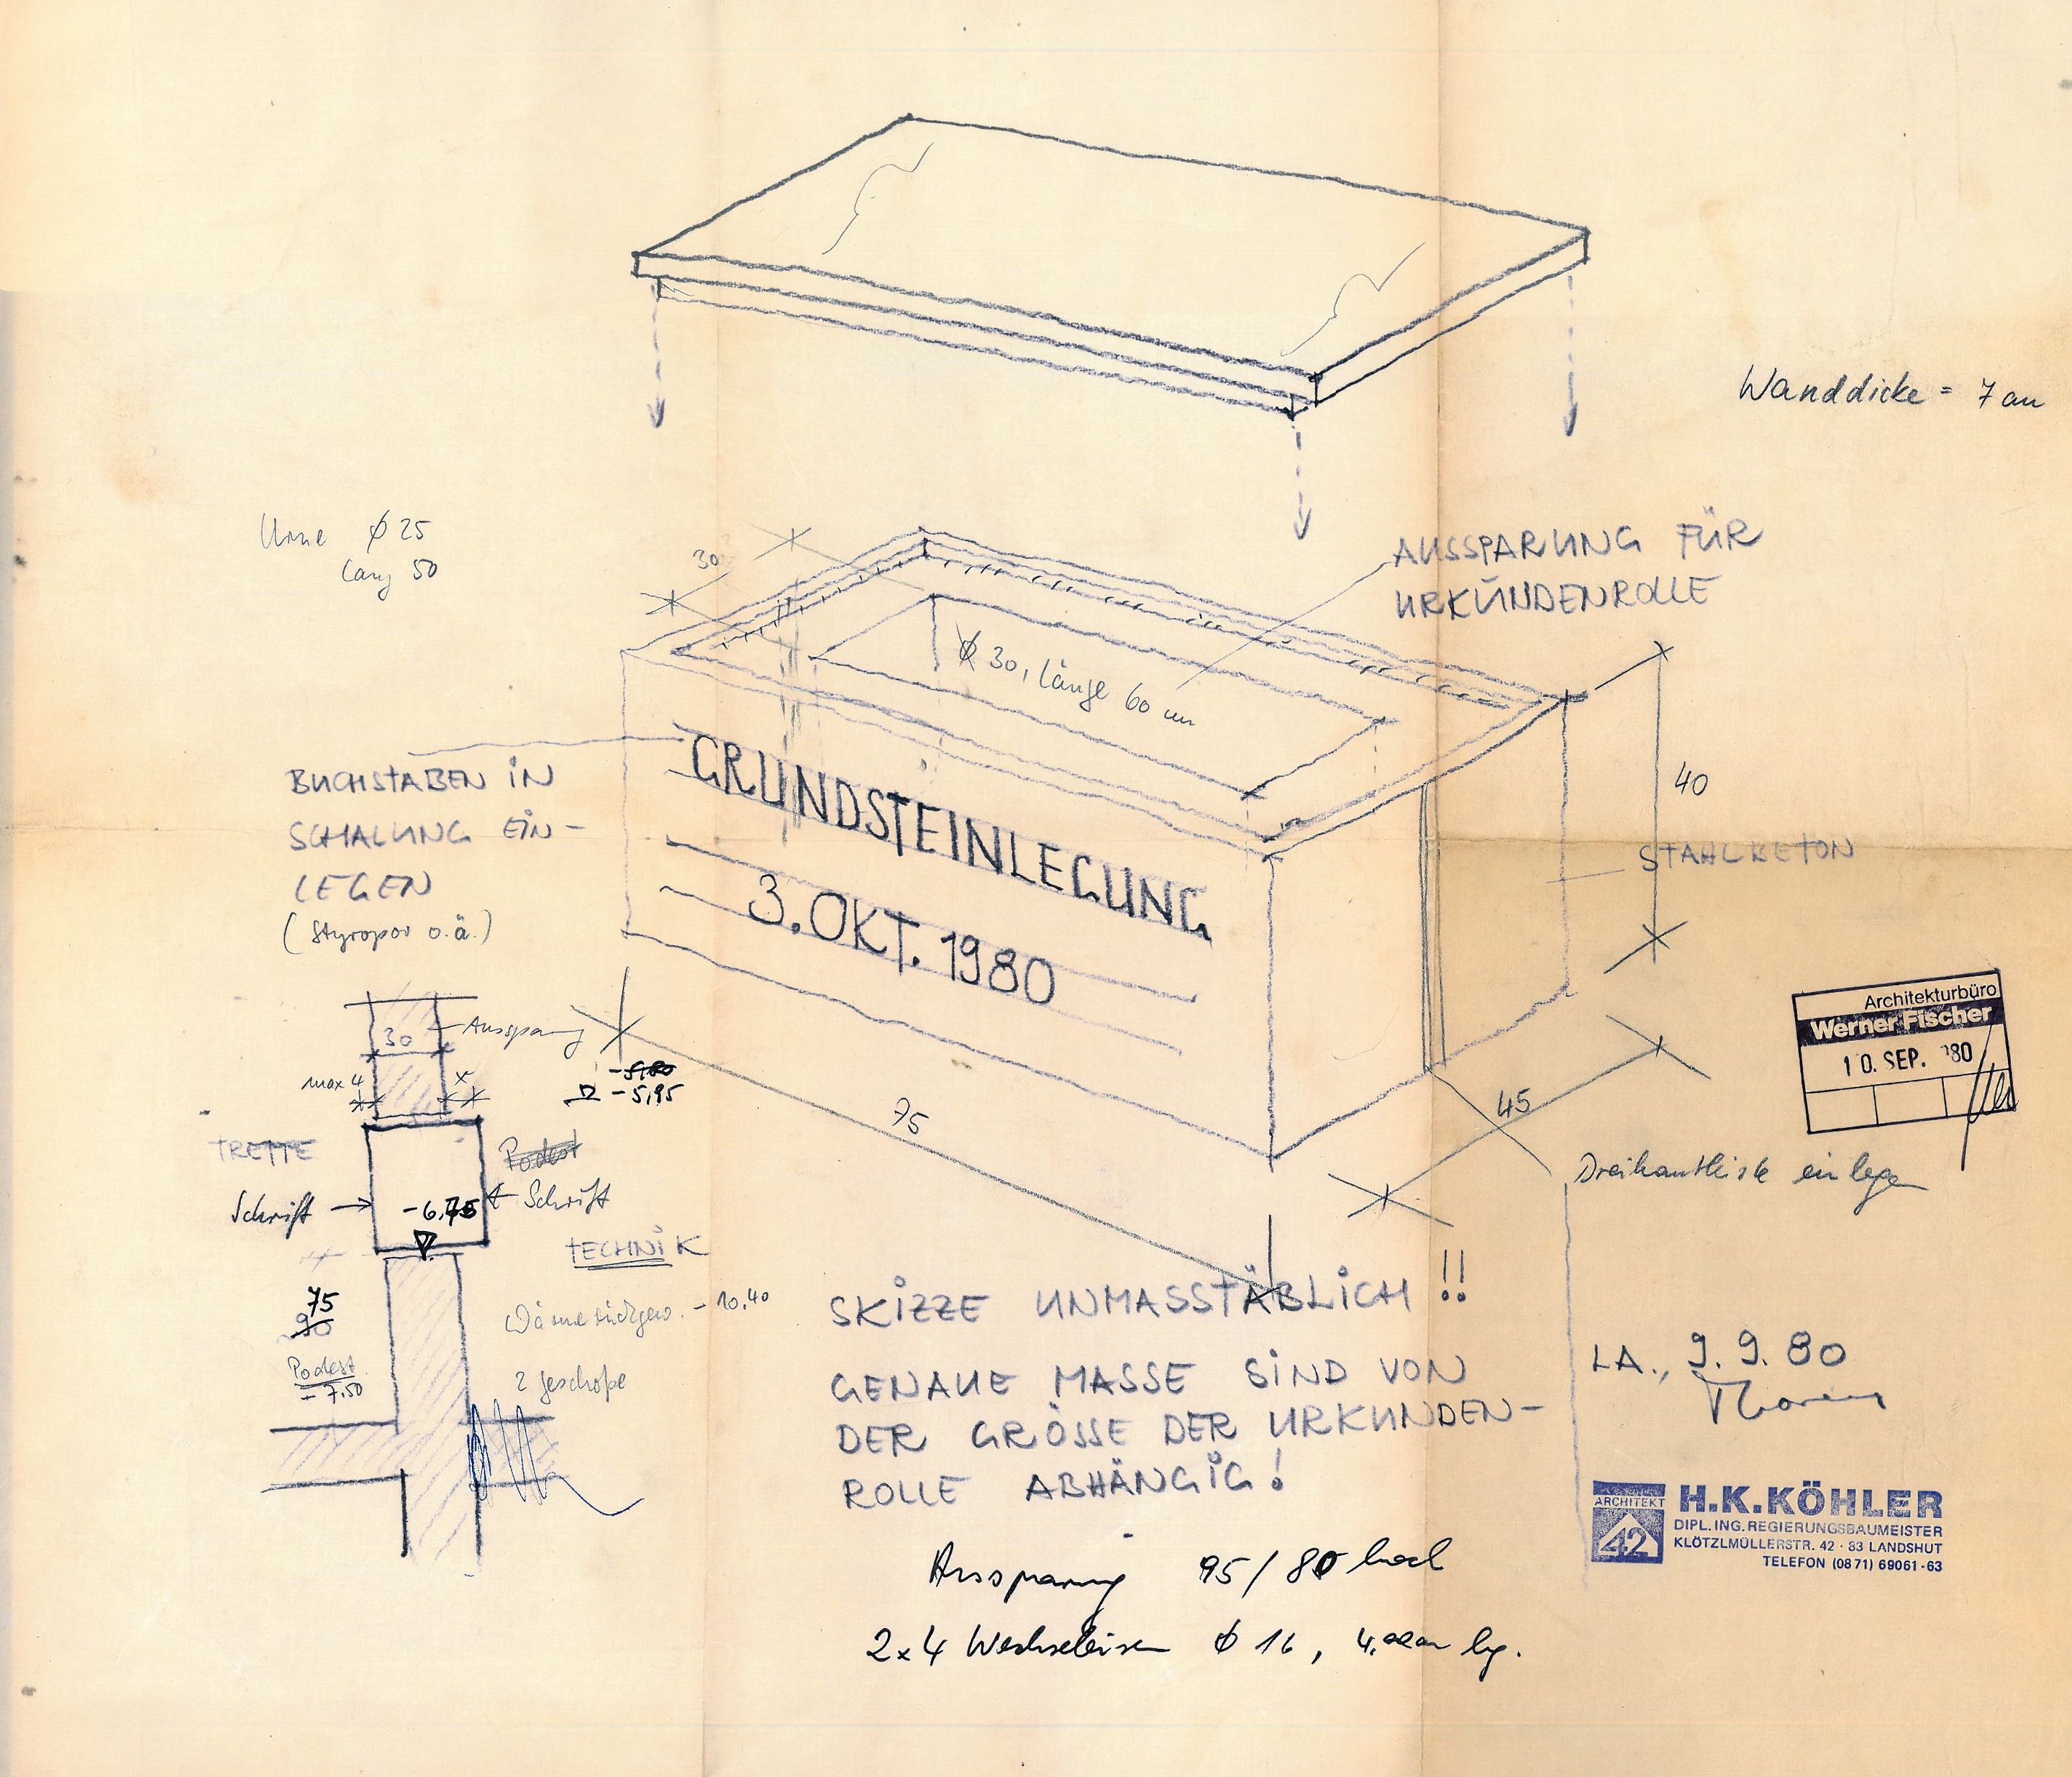 Wanddicke = 7 cm
Urne ϕ 25
lang 50
30
AUSSPARUNG FÜR
URKUNDENROLLE
ϕ 30, Länge 60 cm
BUCHSTABEN IN
SCHALUNG EIN-
LEGEN
(Styropor o.ä.)
GRUNDSTEINLEGUNG
3. OKT. 1980
40
STAHLBETON
75
45
Dreikantleiste einlegen
Architekturbüro
Werner Fischer
10. SEP. '80
30
Aussparung
max 4
x
-5,95
TREPPE
Podest
Schrift
-6,75
Schrift
TECHNIK
75
90
Podest
- 7,50
Wärmerückgew. - 10,40
2 Geschoße
SKIZZE UNMASSTÄBLICH !!
GENAUE MASSE SIND VON
DER GRÖSSE DER URKUNDEN-
ROLLE ABHÄNGIG!
LA., 9. 9. 80
ARCHITEKT
42
H.K.KÖHLER
DIPL.ING.REGIERUNGSBAUMEISTER
KLÖTZLMÜLLERSTR. 42 · 83 LANDSHUT
TELEFON (0871) 69061-63
Aussparung 95/80 hoch
2x4 Wechseleisen ϕ 16, lg.